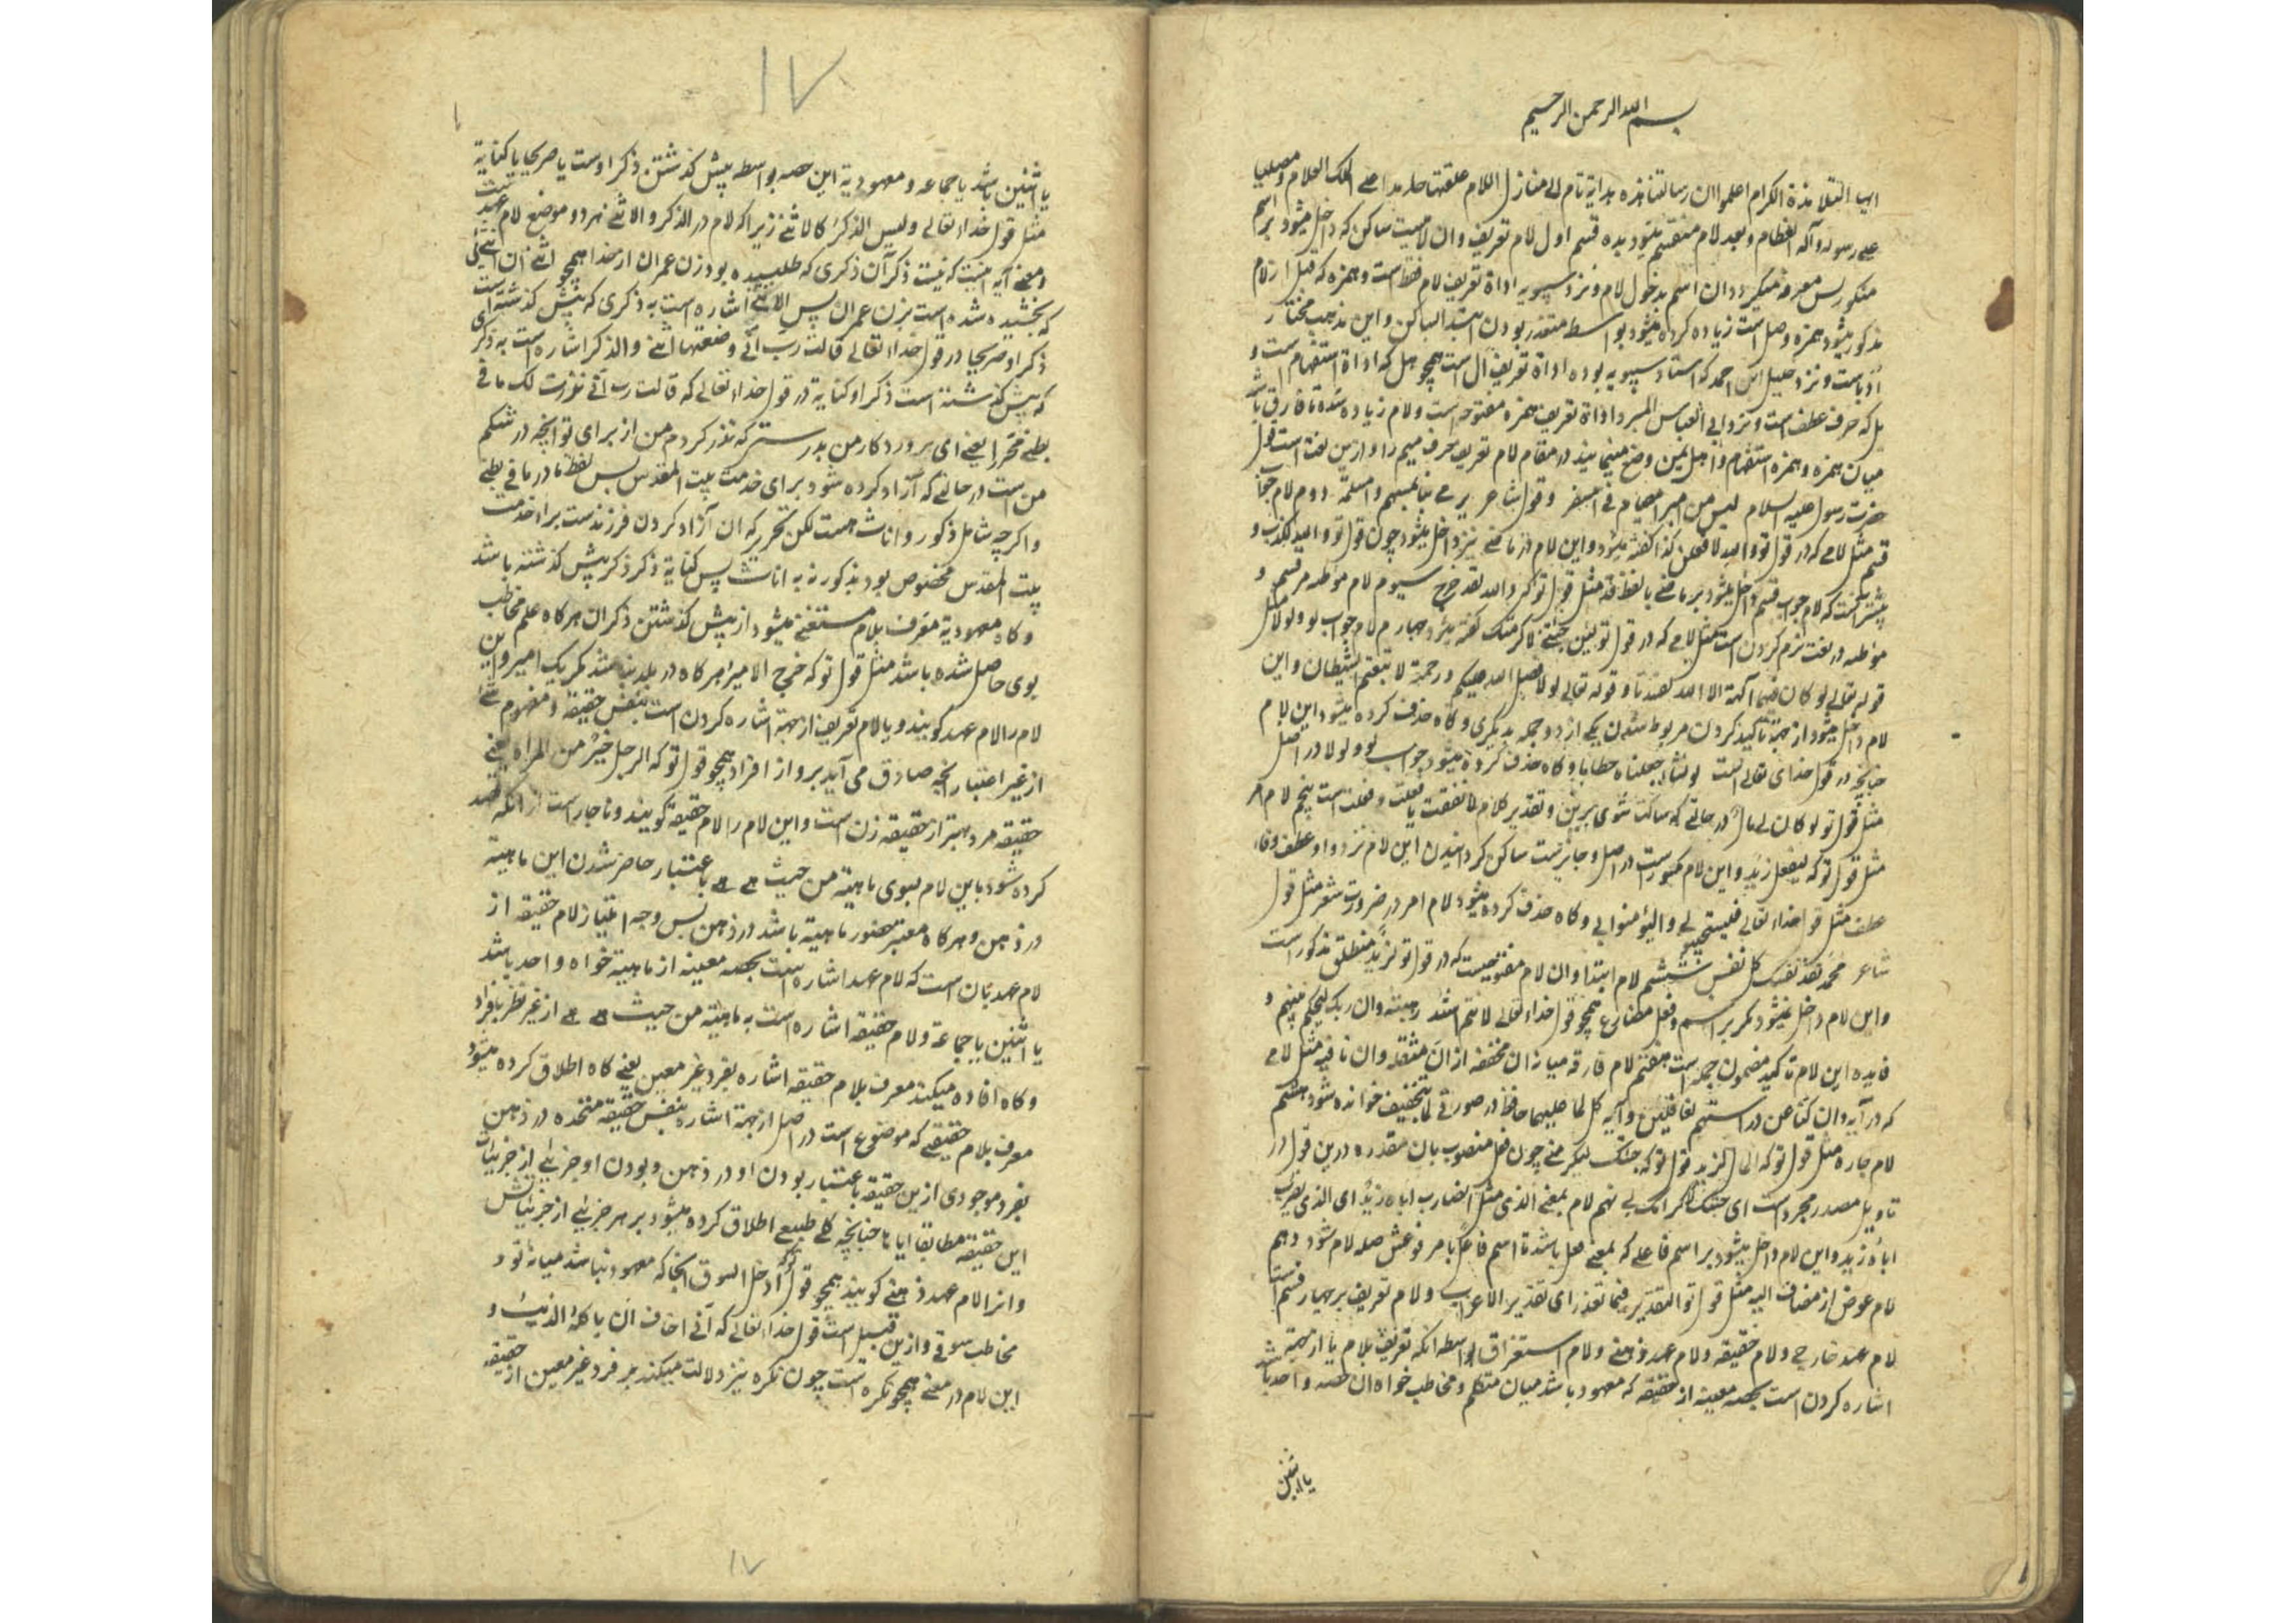 بسم الله الرحمن الرحیم
ایها التلامذة الکرام اعلموا ان رسالتنا هذه هدایة تام الی منازل اللام علقتها حامدا علی الملک العلام ومصلیا
علی رسوله وآله العظام وبعد لام منقسم میشود بده قسم اول لام تعریف وان لامیست ساکن که داخل میشود بر اسم
منکور پس معرفه میگردد ان اسم بدخول لام ونزد سیبویه اداة تعریف لام فقط است وهمزه که قبل از لام
مذکور میشود همزه وصل است زیاده کرده میشود بواسطه متعذر بودن ابتدا بساکن واین مذهب مختار
ادباست ونزد خلیل ابن احمد که استاد سیبویه بوده اداة تعریف ال است همچو هل که اداة استفهام است و
بل که حرف عطف است ونزد ابی العباس المبرد اداة تعریف همزه مفتوحه است ولام زیاده شده تا فارق باشد
میان همزه وهمزه استفهام واهل یمن وضع مینمایند در مقام لام تعریف حرف میم را وازین لغت است قول
حضرت رسول علیه السلام لیس من امبر امصیام فی امسفر وقول شاعر یرمی بامسهم وامسلمة دوم لام جواب
قسم مثل لامی که در قول تو والله لافعلن کذا گفته میشود واین لام در ماضی نیز داخل میشود چون قول تو والله لکذب و
پیشتر آنست که لام جواب قسم داخل میشود بر ماضی با لفظ قد مثل قول تو که والله لقد خرج سیوم لام موطئه مر قسم و
موطئه در لغت نرم کردن است مثل لامی که در قول تو لئن جئتنی لاکرمتک گفته میشود چهارم لام جواب لو ولولا مثل
قوله تعالی لو کان فیهما آلهة الا الله لفسدتا وقوله تعالی لولا فضل الله علیکم ورحمته لاتبعتم الشیطان واین
لام داخل میشود از جهة تاکید کردن مربوط شدن یکی از دو جمله بدیگری وگاه حذف کرده میشود این لام
چنانچه در قول خدای تعالی است لو نشاء جعلناه حطاما وگاه حذف کرده میشود جواب لو ولولا در اصل
مثل قول تو لو کان لی مال در حالتی که ساکت شوی برین وتقدیر کلام لانفقت یا فعلت وفعلت است پنجم لام امر
مثل قول تو که لیفعل زید واین لام مکسور است در اصل وجایزست ساکن گردانیدن این لام نزد واو عطف وفاء
عطف مثل قول خداء تعالی فلیستجیبوا لی والیؤمنوا بی وگاه حذف کرده میشود لام امر در ضرورت شعر مثل قول
شاعر محمد تفد نفسک کل نفس ششم لام ابتدا وان لام مفتوحیست که در قول تو لزید منطلق مذکور است
واین لام داخل نمیشود مگر بر اسم وفعل مضارع همچو قول خداء تعالی لانتم اشد رهبة وان ربک لیحکم بینهم و
فایده این لام تاکید مضمون جمله است هفتم لام فارقه میان ان مخففه از ان مثقله وان نافیه مثل لامی
که در آیه وان کنا عن دراستهم لغافلین وآیه کل لما علیها حافظ در صورتی که لما بتخفیف خوانده شود هشتم
لام جاره مثل قول تو که المال لزید وقول تو که جئتک لتکرمنی چون فعل منصوب بان مقدره درین قول در
تاویل مصدر مجرد است ای جئتک لاکرامک لی نهم لام بمعنی الذی مثل الضارب اباه زید ای الذی یضرب
اباه زید واین لام داخل میشود بر اسم فاعلی که بمعنی فعل باشد تا اسم فاعل با مرفوعش صله لام شود دهم
لام عوض از مضاف الیه مثل قول تو التقدیر فیما تعذر ای تقدیر الاعراب ولام تعریف بر چهار قسم است
لام عهد خارجی ولام حقیقه ولام عهد ذهنی ولام استغراق بواسطه انکه تعریف بلام یا از جهة
اشاره کردن است بحصه معینه از حقیقه که معهود باشد میان متکلم ومخاطب خواه ان حصه واحد باشد
یا اثنین
۱۷
یا اثنین باشد یا جماعه ومعهودیة این حصه بواسطه پیش گذشتن ذکر اوست یا صریحا یا کنایة
مثل قول خداء تعالی ولیس الذکر کالانثی زیرا که لام در الذکر والانثی هر دو موضع لام عهد است
ومعنی آیه اینست که نیست ذکر آن ذکری که طلبیده بود زن عمران از خدا همچو انثی ان انثیئی
که بخشیده شده است بزن عمران پس الانثی اشاره است به ذکری که پیش گذشته است
ذکر او صریحا در قول خداء تعالی قالت رب انی وضعتها انثی والذکر اشاره است به ذکر
که پیش گذشته است ذکر او کنایة در قول خداء تعالی که قالت رب انی نذرت لک ما فی
بطنی محررا یعنی ای پروردکار من بدرستی که نذر کردم من از برای تو آنچه در شکم
من است در حالتی که آزاد کرده شود برای خدمت بیت المقدس پس لفظ ما در ما فی بطنی
واگرچه شامل ذکور واناث هست لکن تحریر که ان آزاد کردن فرزندست برا خدمت
بیت المقدس مخصوص بود بذکور نه به اناث پس کنایة ذکر ذکر پیش گذشته باشد
وگاه معهودیة معرف بلام مستغنی میشود از پیش گذشتن ذکر ان هرگاه علم مخاطب
بوی حاصل شده باشد مثل قول تو که خرج الامیر هرگاه در بلد نباشد مگر یک امیر واین
لام را لام عهد گویند ویا لام تعریف از جهة اشاره کردن است بنفس حقیقة ومفهوم شیء
از غیر اعتبار آنچه صادق می آید برو از افراد همچو قول تو که الرجل خیر من المراة یعنی
حقیقه مرد بهتر از حقیقه زن است واین لام را لام حقیقه گویند وناچار است از آنکه قصد
کرده شود باین لام بسوی ماهیة من حیث هی هی باعتبار حاضر شدن این ماهیة
در ذهن وهرگاه معتبر حضور ماهیة باشد در ذهن پس وجه امتیاز لام حقیقه از
لام عهد بان است که لام عهد اشاره است بحصه معینه از ماهیة خواه واحد باشد
یا اثنین یا جماعة ولام حقیقه اشاره است به ماهیة من حیث هی هی از غیر نظر بافراد
وگاه افاده میکند معرف بلام حقیقه اشاره بفرد غیر معین یعنی گاه اطلاق کرده میشود
معرف بلام حقیقی که موضوع است در اصل از جهة اشاره بنفس حقیقه متحده در ذهن
بفرد موجودی ازین حقیقه باعتبار بودن او در ذهن وبودن او جزئی از جزئیات
این حقیقه مطابقا ایاها چنانچه کلی طبیعی اطلاق کرده میشود بر هر جزئی از جزئیاتش
وانرا لام عهد ذهنی گویند همچو قول تو که ادخل السوق آنجا که معهود نباشد میانه تو و
مخاطب سوقی وازین قبیل است قول خداء تعالی که انی اخاف ان یاکله الذئب و
این لام در معنی همچو نکره است چون نکره نیز دلالت میکند بر فرد غیر معین از حقیقه
۱۷